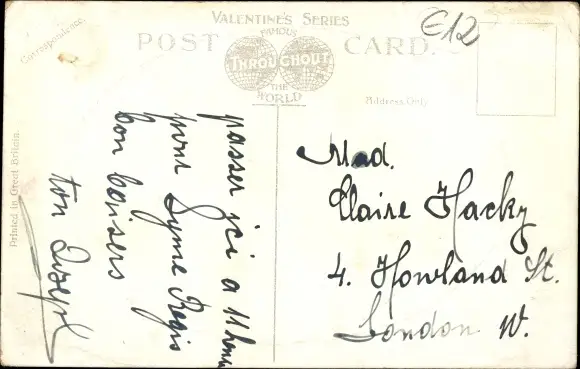 VALENTINE'S SERIES
€12
FAMOUS
POST CARD.
THROUGHOUT
THE
WORLD
Correspondence.
Address Only
Printed in Great Britain.
passer ici a 11 heures
pour Lyme Regis
bon baisers
ton Joseph
Mad.
Claire Hacky
4. Howland St.
London W.